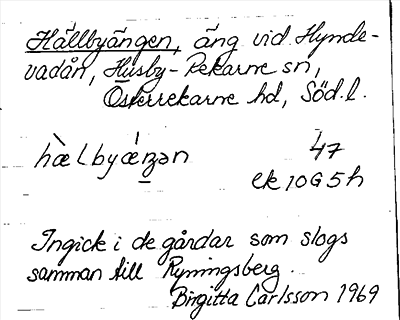 Hällbyängen, äng vid Hynde-
vadån, Husby-Rekarne sn,
Österrekarne hd, Söd. l.
hæ̀lbyǽŋən 47
ek 10G5h
Ingick i de gårdar som slogs
samman till Ryningsberg.
Birgitta Carlsson 1969